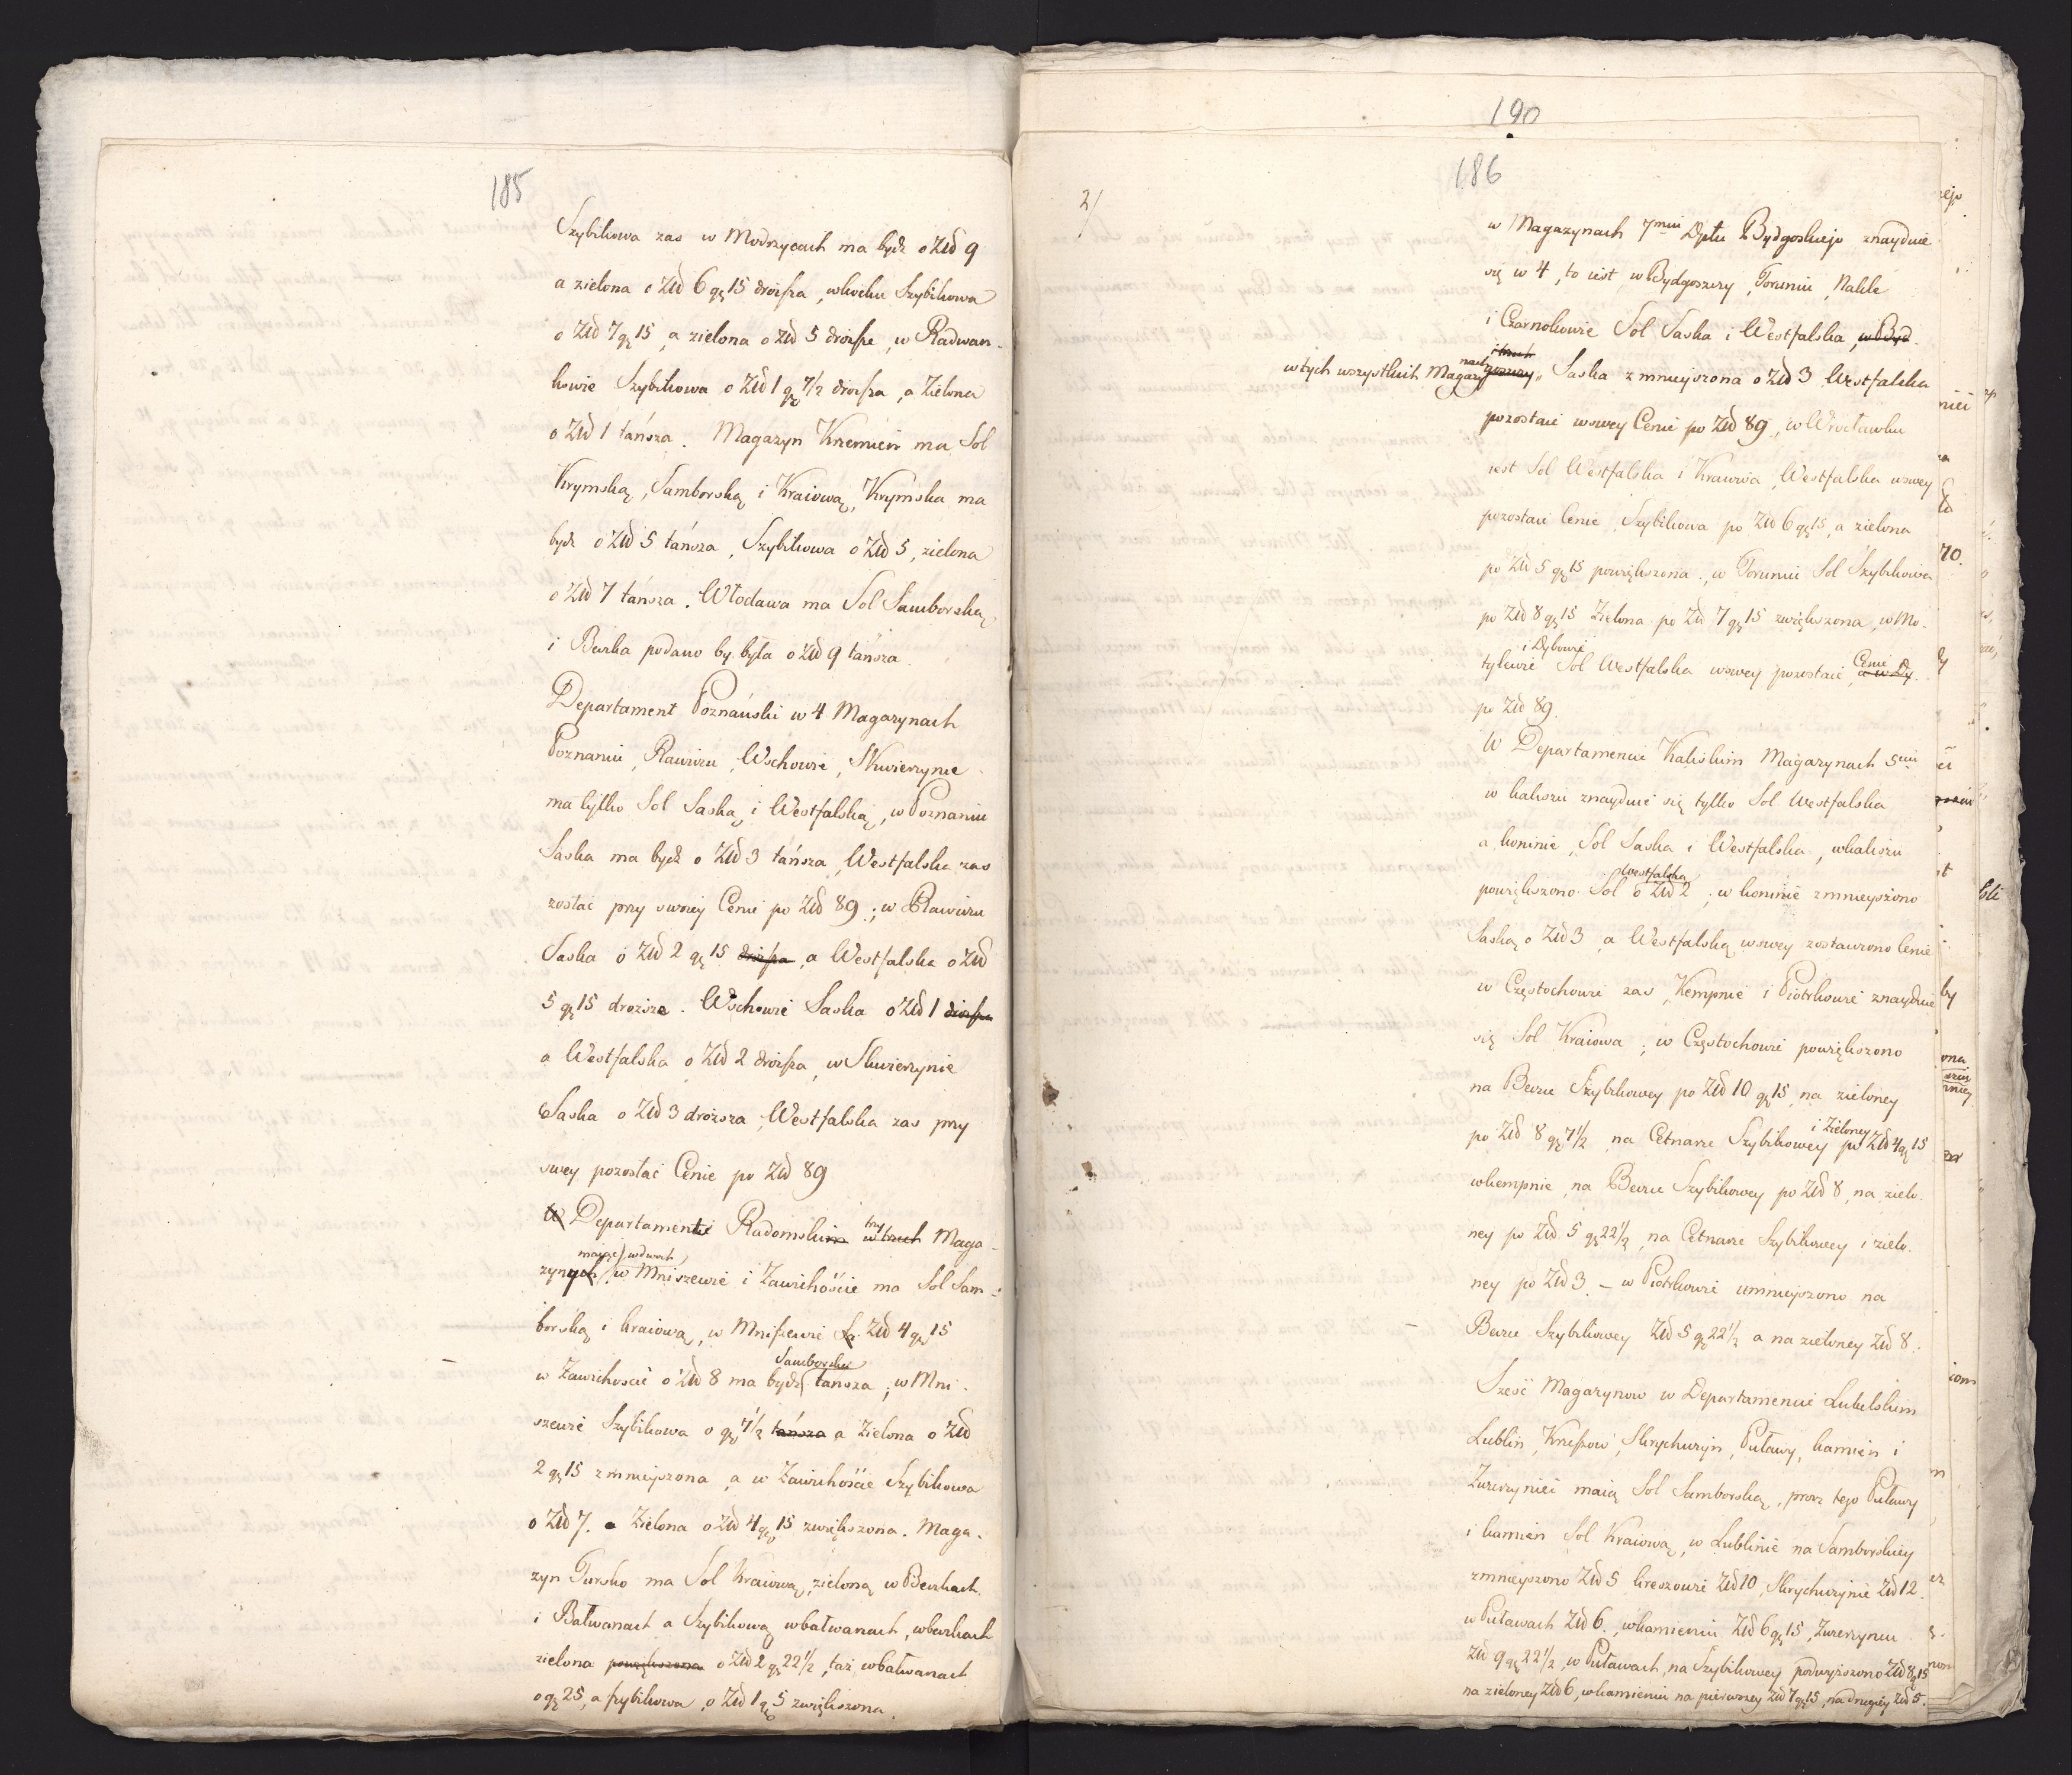 185
Szybikowa zas w Modrzycach ma bydź o Złd 9
a zielona o Złd 6 gr 15 droższa, w Kocku Szybikowa
o Złd 7 gr 15, a zielona o Złd 5 droższe, w Radwan-
kowie Szybikowa o Złd 1 gr 7 1/2 droższa, a Zielona
o Złd 1 tańsza. Magazyn Krzemień ma Sol
Krymską, Samborską i Kraiową, Krymska ma
bydź o Złd 5 tańsza, Szybikowa o Złd 5, zielona
o Złd 7 tańsza. Włodawa ma Sol Samborską,
i Beczka podano by była o Złd 9 tańsza.
Departament Poznański w 4 Magazynach
Poznaniu, Rawiczu, Wschowie, Skwierzynie
ma tylko Sol Saską i Westfalską, w Poznaniu
Saska ma bydź o Złd 3 tańsza, Westfalska zas
zostać przy swoiey Cenie po Złd 89; w Rawiczu
Saska o Złd 2 gr 15 droższa, a Westfalska o Złd
5 gr 15 droższe. Wschowie Saska o Złd 1 droższa
a Westfalska o Złd 2 droższa, w Skwierzynie
Saska o Złd 3 droższa, Westfalska zas przy
swey pozostać Cenie po Złd 89
W Departamencie Radomskim w trzech trzy Maga-
zynach maiące w dwoch w Mniszewie i Zawichoście ma Sol Sam-
borską i kraiową, w Mniszewie Złd 4 gr 15
w Zawichoscie o Złd 8 ma bydź Samborska tańsza; w Mni-
szewie Szybikowa o gr 7 1/2 tańsza a Zielona o Złd
2 gr 15 zmnieyszona, a w Zawichoście Szybikowa
o Złd 7. a Zielona o Złd 4 gr 15 zwiększona. Maga-
zyn Tursko ma Sol Kraiową, zieloną w Beczkach
i Bałwanach a Szybikową w bałwanach, w beczkach
zielona powiększona o Złd 2 gr 22 1/2, taż w bałwanach
o gr 25, a szybikowa, o Złd 1 gr 5 zwiększona.
190
186
2/
w Magazynach 7miu Dptu Bydgoskiego znayduie
się w 4, to iest w Bydgoszczy, Toruniu, Nakle
i Czarnkowie Sol Saska i Westfalska, w Byd-
w tych wszystkich Magazynach goszczy, Saska zmnieyszona o Złd 3 Westfalska
pozostaie w swey Cenie po Złd 89, w Wrocławku
iest Sol Westfalska i Kraiowa, Westfalska w swey
pozostaie Cenie, Szybikowa po Złd 6 gr 15, a zielona
po Złd 5 gr 15 powiększona, w Toruniu Sol Szybikowa
po Złd 8 gr 15 Zielona po Złd 7 gr 15 zwiększona, w Mo-
tylewie i Dybowie Sol Westfalska w swey pozostaie Cenie, a w Dy-
po Złd 89.
W Departamencie Kaliskim Magazynach 5ciu
w kaliszu znayduie się tylko Sol Westfalska
a koninie, Sol Saska i Westfalska, w kaliszu
powiększono Sol Westfalska o Złd 2; w koninie zmnieyszono
Saską o Złd 3, a Westfalską w swey zostawiono Cenie
w Częstochowie zas, Kempnie i Piotrkowie znayduie
się Sol Kraiowa; w Częstochowie powiększono
na Beczce Szybikowey po Złd 10 gr 15, na zieloney
po Złd 8 gr 7 1/2, na Cetnarze Szybikowey i Zieloney po Złd 4 gr 15
w kempnie, na Beczce Szybikowey po Złd 8, na zielo-
ney po Złd 5 gr 22 1/2, na Cetnarze Szybikowey i zielo-
ney po Złd 3. – w Piotrkowie umnieyszono na
Beczce Szybikowey Złd 5 gr 22 1/2 a na zieloney Złd 8.
Sześć Magazynow w Departamencie Lubelskim
Lublin, Krzeszow, Skrychurzyn, Puławy, kamień i
Zwierzyniec maią Sol Samborską, procz tego Puławy
i kamień Sol Kraiową, w Lublinie na Samborskiey
zmnieyszono Złd 5 kreszowie Złd 10, Skrychurzynie Złd 12.
w Puławach Złd 6., w kamieniu Złd 6 gr 15, Zwierzyńcu
Złd 9 gr 22 1/2, w Puławach, na Szybikowey podwyższono Złd 8 gr 15
na zieloney Złd 6, w kamieniu na pierwszey Złd 7 gr 15, na drugiey Złd 5.